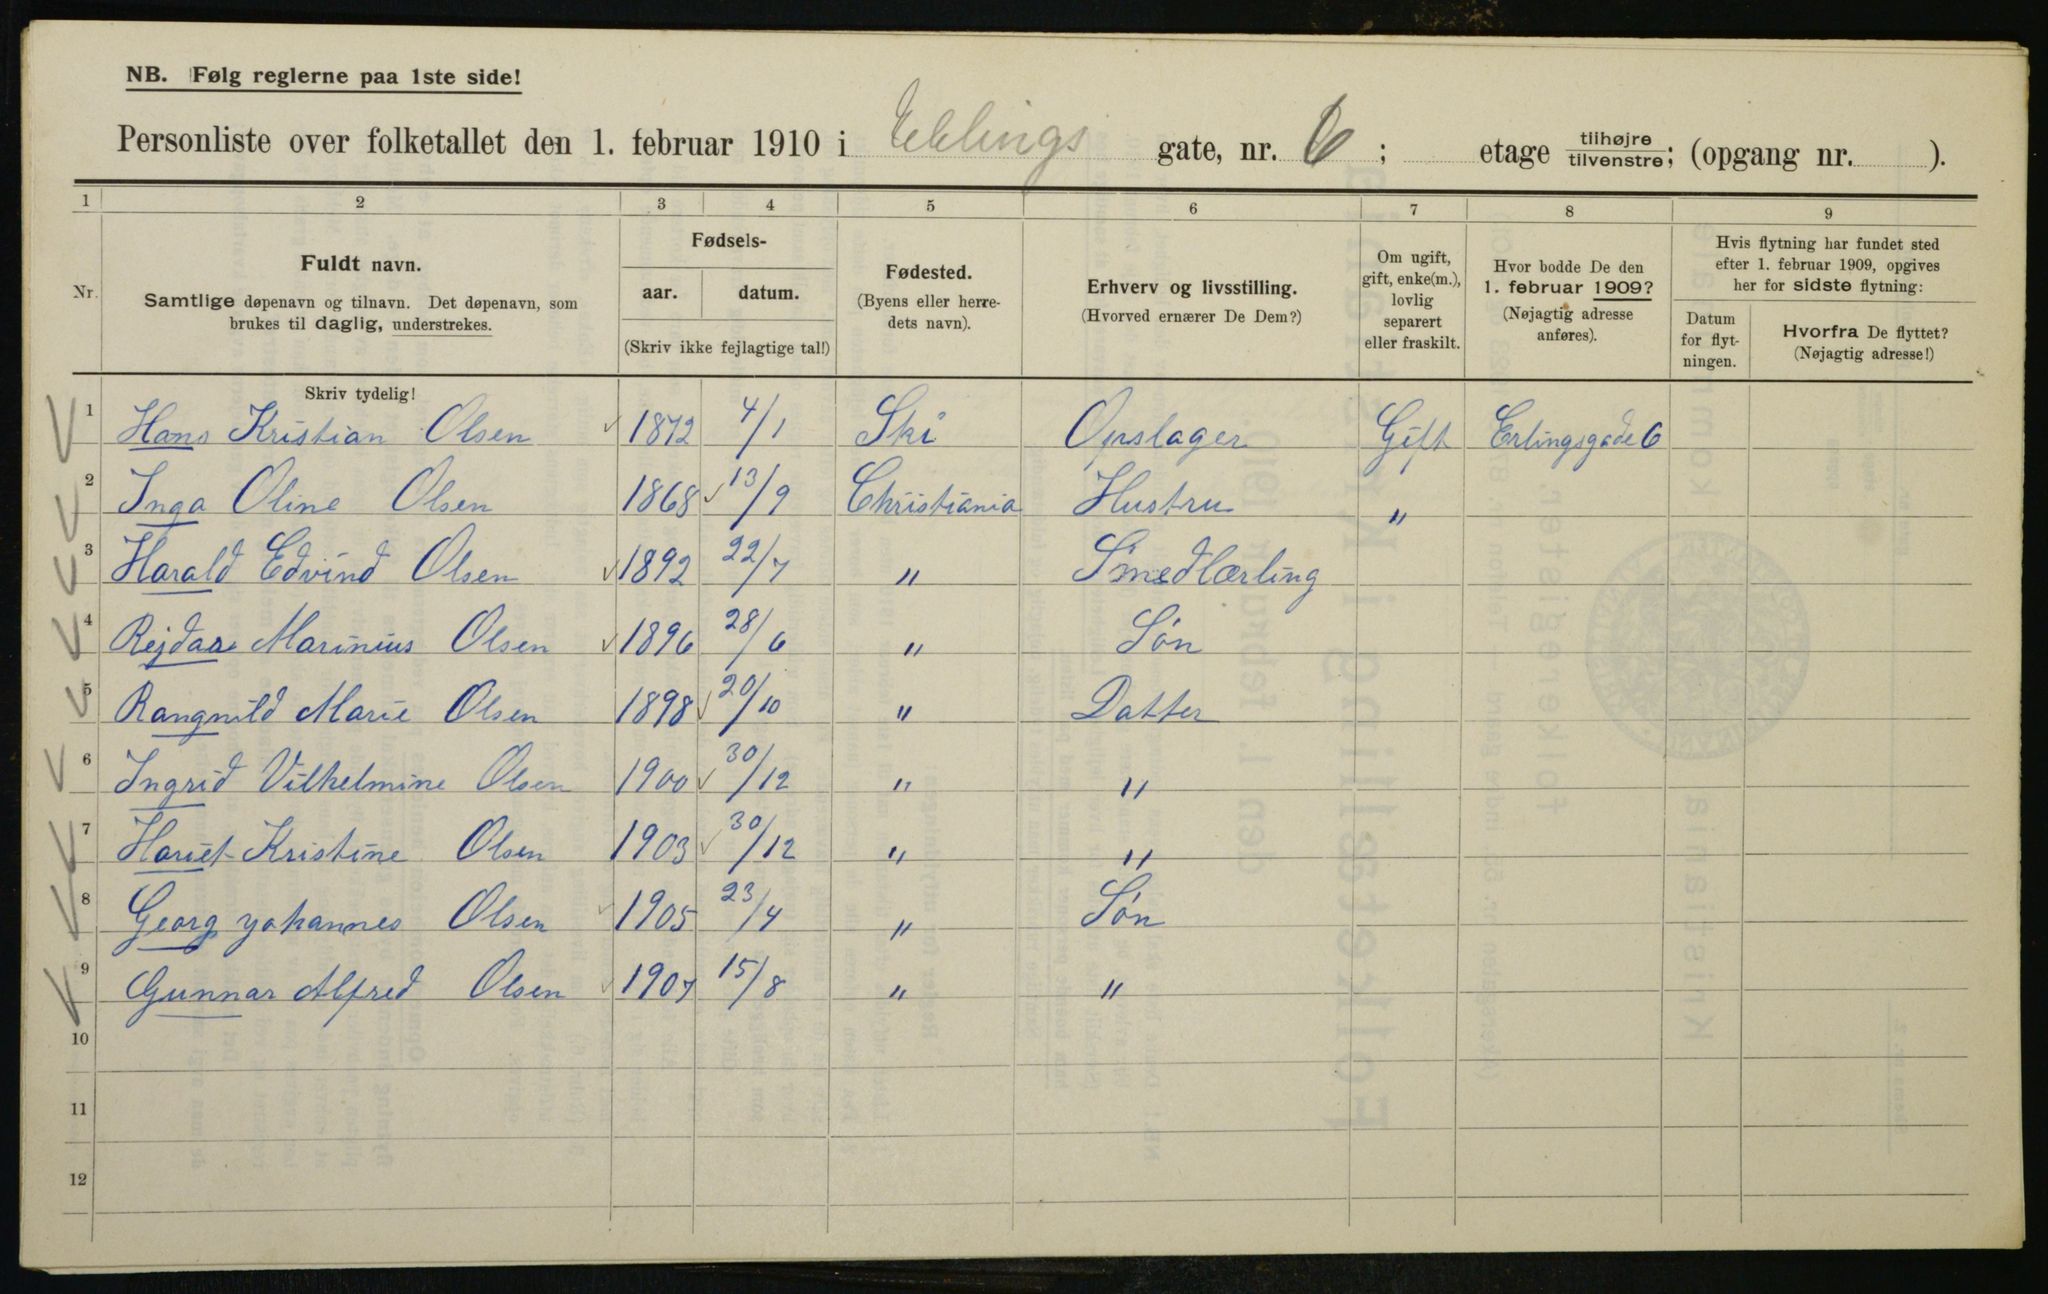 NB. Følg reglerne paa 1ste side!
Personliste over folketallet den 1. februar 1910 i Erlings gate, nr. 6; etage tilhøjre tilvenstre; (opgang nr. ).
1 2 3 4 5 6 7 8 9
Nr. Fuldt navn. Samtlige døpenavn og tilnavn. Det døpenavn, som brukes til daglig, understrekes.
Fødsels- aar. datum. (Skriv ikke fejlagtige tal!)
Fødested. (Byens eller herredets navn).
Erhverv og livsstilling. (Hvorved ernærer De Dem?)
Om ugift, gift, enke(m.), lovlig separert eller fraskilt.
Hvor bodde De den 1. februar 1909? (Nøjagtig adresse anføres).
Hvis flytning har fundet sted efter 1. februar 1909, opgives her for sidste flytning:
Datum for flytningen. Hvorfra De flyttet? (Nøjagtig adresse!)
Skriv tydelig!
1 Hans Kristian Olsen 1872 4/1 Ski Opslager Gift Erlingsgade 6
2 Inga Oline Olsen 1868 13/9 Christiania Hustru "
3 Harald Edvind Olsen 1892 22/7 " Smedlærling
4 Rejdar Marinius Olsen 1896 28/6 " Søn
5 Rangnild Marie Olsen 1898 20/10 " Datter
6 Ingrid Vilhelmine Olsen 1900 30/12 " "
7 Hariet Kristine Olsen 1903 30/12 " "
8 Georg Johannes Olsen 1905 23/4 " Søn
9 Gunnar Alfred Olsen 1907 15/8 " "
10
11
12